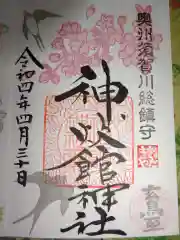 奥州須賀川総鎮守
神炊館神社
令和四年四月三十日